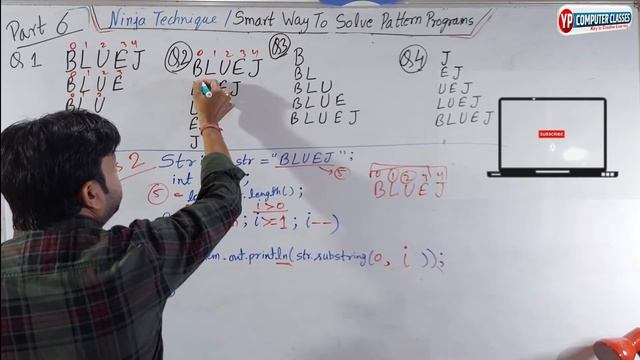 Part 6
Ninja Technique / Smart Way To Solve Pattern Programs
YP COMPUTER CLASSES
Key to Creative Learning
Q1
0 1 2 3 4
B L U E J
0 1 2 3
B L U E
0 1 2
B L U
Q2
0 1 2 3 4
B L U E J
E J
J
Q3
B
B L
B L U
B L U E
B L U E J
Q4
J
E J
U E J
L U E J
B L U E J
SUBSCRIBE
2 str = "BLUEJ";
5
int
5
.length();
i>0
; i>=1; i--)
.out.println(str.substring(0, i));
0 1 2 3 4
B L U E J